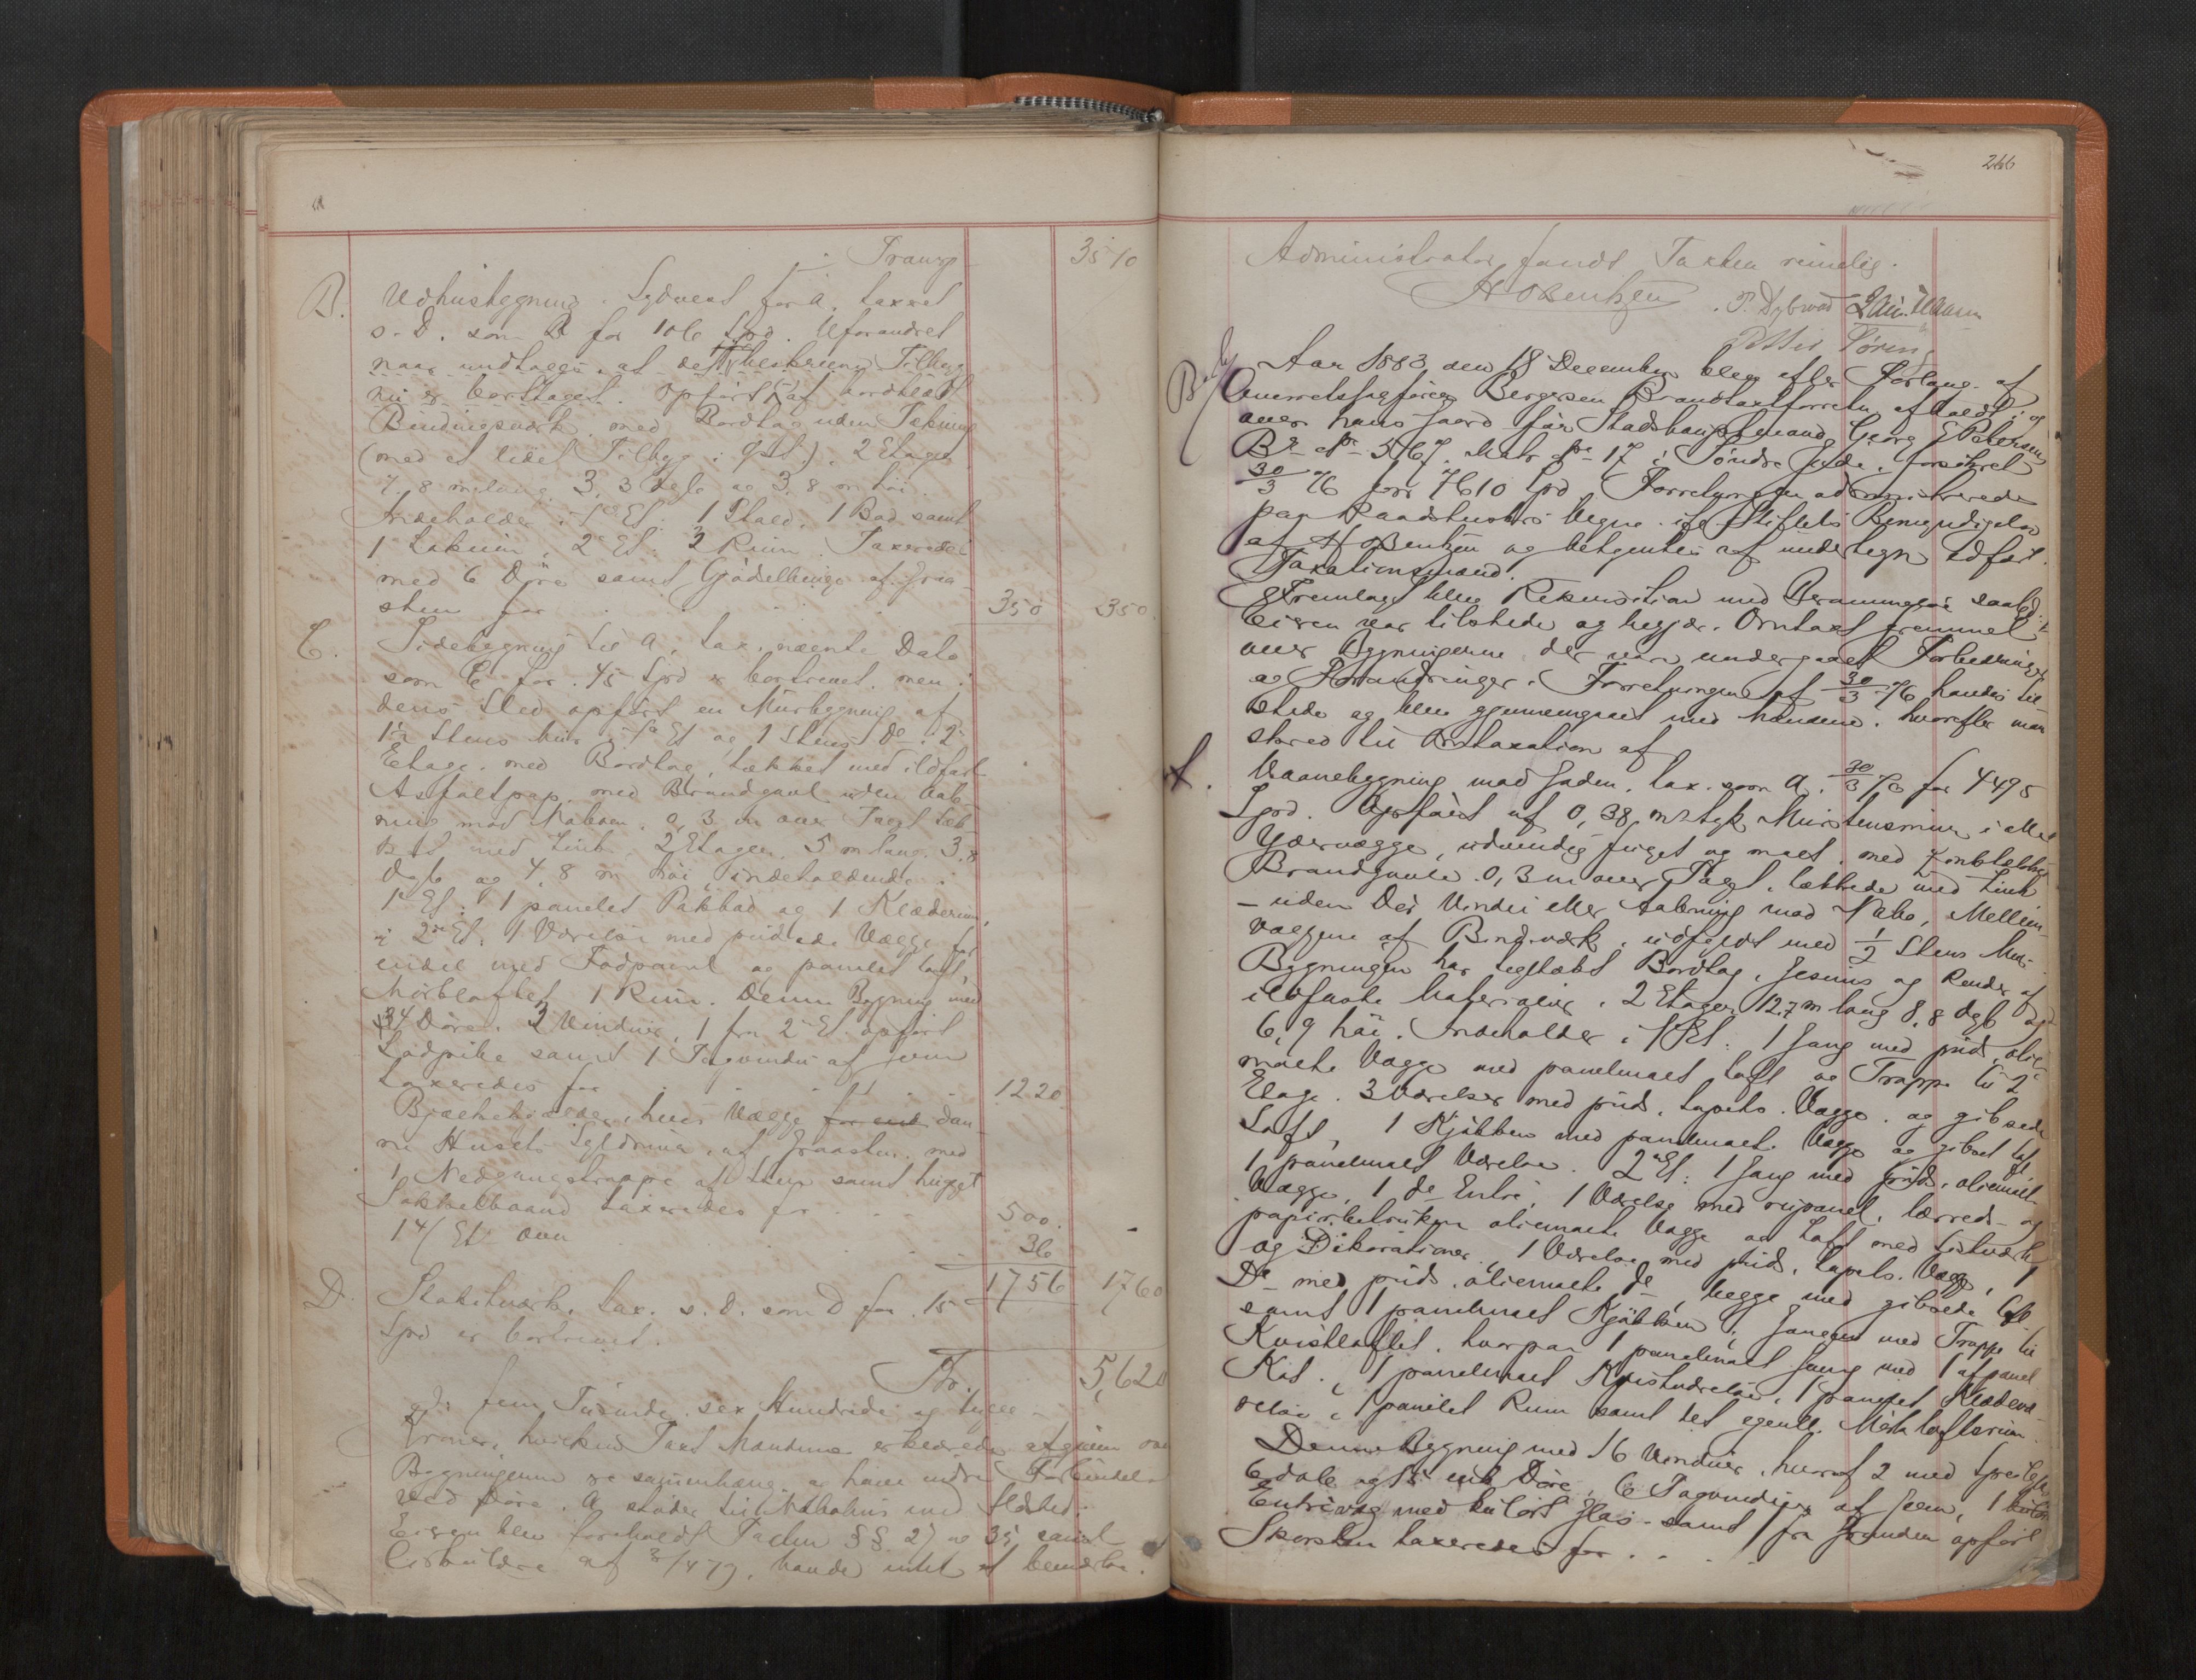 Transp 3510
B. Udhusbygning i Sydvest for A, taxeret
s. D. som B for 106 Spd. Uforandret
naar undtages, at det beskrevne Tilbyg
nu er borttaget. Opført af bordklædt
Bindingsværk med Bordtag uden Tækning
(med et lidet Tilbyg i Øst). 2 Etager
7,8 m lang, 3,3 dyb og 3,8 m høi.
Indeholder i 1ste Et: 1 Stald, 1 Bod samt
1 Lokum, 2n Et: 2 Rum. Taxeredes
med 6 Døre samt Gjødselbinge af Graa
sten for 350 350
C. Sidebygning til A, tax. nævnte Dato
som C for 45 Spd er bortrevet, men i
dens Sted opført en Murbygning af
1½ Stens Mur i 1ste Et og 1 Stens Do i 2n
Etage, med Bordtag, tækket med ildfast
Asfaltpap, med Brandgavl uden Aab-
ning mod Naboen, 0,3 m over Taget tæk-
ket med Zink. 2 Etager, 5 m lang, 3,8
dyb og 4,8 m høi, indeholdende i
1ste Et: 1 panelet Pakbod og 1 Klæderum,
i 2den Et. 1 Værelse med pudsede Vægge for
endel med Fodpanel og panelet Loft,
Mørkloftet 1 Rum. Denne Bygning med
4 Døre, 3 Vinduer, 1 fra 2n Et. opført
Lodpibe samt 1 Tagvindu af Jern
taxeredes for 1220
Bjælkekjælder, hvis Vægge for end dan-
ne Husets Sydmur, af Graasten, med
1 Nedgangstrappe af Sten samt hugget
Sokkelbaand taxeredes for 500.
1 4/Et Ovn 36
1756 1760
D. Stakitværk, tax. s. D. som D for 15
Spd er bortrevet.
Kr. 5,620
er: fem Tusinde, sex Hundrede og tyve
Kroner, hvilken Taxt Mændene erklærede afgiven
Bygningerne sammenhæng og have indre Forbindelse
ved Døre. A støder til Nabohus med
Eieren blev foreholdt Loven §§ 27 og 35 samt
Cirkulære af 3/4 79, havde intet at bemærke.

266
Administrator fandt Taxten rimelig.
H Bentzen. P. Dybvad
Petter Søren
Aar 1883 den 18 December blev efter Forlang. af
Overretssagfører Bergersen Brandtaxtforretn. afholdt i og
over hans Gaard før Stadshauptmand Georg Petersens
Br No 567, Matr No 17 i Søndre Gade, forsikret
30/3 76 for 7610 Spd. Forretningen administreredes
paa Raadstuens Vegne ifl. Stiftets Bemyndigelse
af H Bentzen og betjentes af undertegn. edfæst.
Taxationsmænd.
Fremlagt blev Rekvisition med Berammelse saal.
Eieren var tilstede og begjær. Omtaxt fremmet
over Bygningerne der vare undergaaet Forbedringer
og Forandringer. Forretningen af 30/3 76 havdes til-
stede og blev gjennemgaaet med Mændene, hvorefter man
skred til Omtaxation af
A. Vaanebygning mod Gaden, tax. som A. 30/3 76 for 4495
Spd. Opført af 0,38 m tyk Murstensmur i alle
Ydervægge, udvendig fuget og malt, med zinktækket
Brandgavle 0,3 m over Taget, tækkede med Zink
– uden Dør Vindu eller Aabning mod Nabo, Mellem-
væggene af Bindværk, udfyldt med ½ Stens Mur.
Bygningen har tegltækt Bordtag, Gesims og Render af
ildfaste Materialier. 2 Etager, 12,7 m lang, 8,8 dyb og
6,9 høi. Indeholder i 1ste Et: 1 Gang med puds. olie-
malte Vægge med panelmalt Loft og Trappe til 2n
Etage. 3 Værelser med puds. tapets. Vægge og gibsede
Loft, 1 Kjøkken med panelmalt. Vægge og gibset Loft,
1 panelmalt Værelse. 2n Et: 1 Gang med puds. oliemalt
Vægge, 1 do Entré, 1 Værelse med rupanel. lærreds- og
papirbetrukken oliemalte Vægge og Loft med Listværk
og Dekorationer, 1 Værelse med puds. tapets. Vægge, 1
Do med puds. oliemalte do, begge med gibsede Loft
samt 1 panelmalt Kjøkken; Gangen med Trappe til
Kvistloftet, hvorpaa 1 panelmalt Gang med 1 afpanel
Kot, 1 panelmalt Kvistværelse, 1 panelet Klædevæ-
relse, 1 panelet Rum samt det egentl. Mørkloftsrum.
Denne Bygning med 16 Vinduer, hvoraf 2 med Speilglas
6 doble og 15 enk Døre, 6 Tagvinduer af Jern, 1
Entrévæg med kulørt Glas samt 1 fra Grunden opført
Skorsten taxeredes for